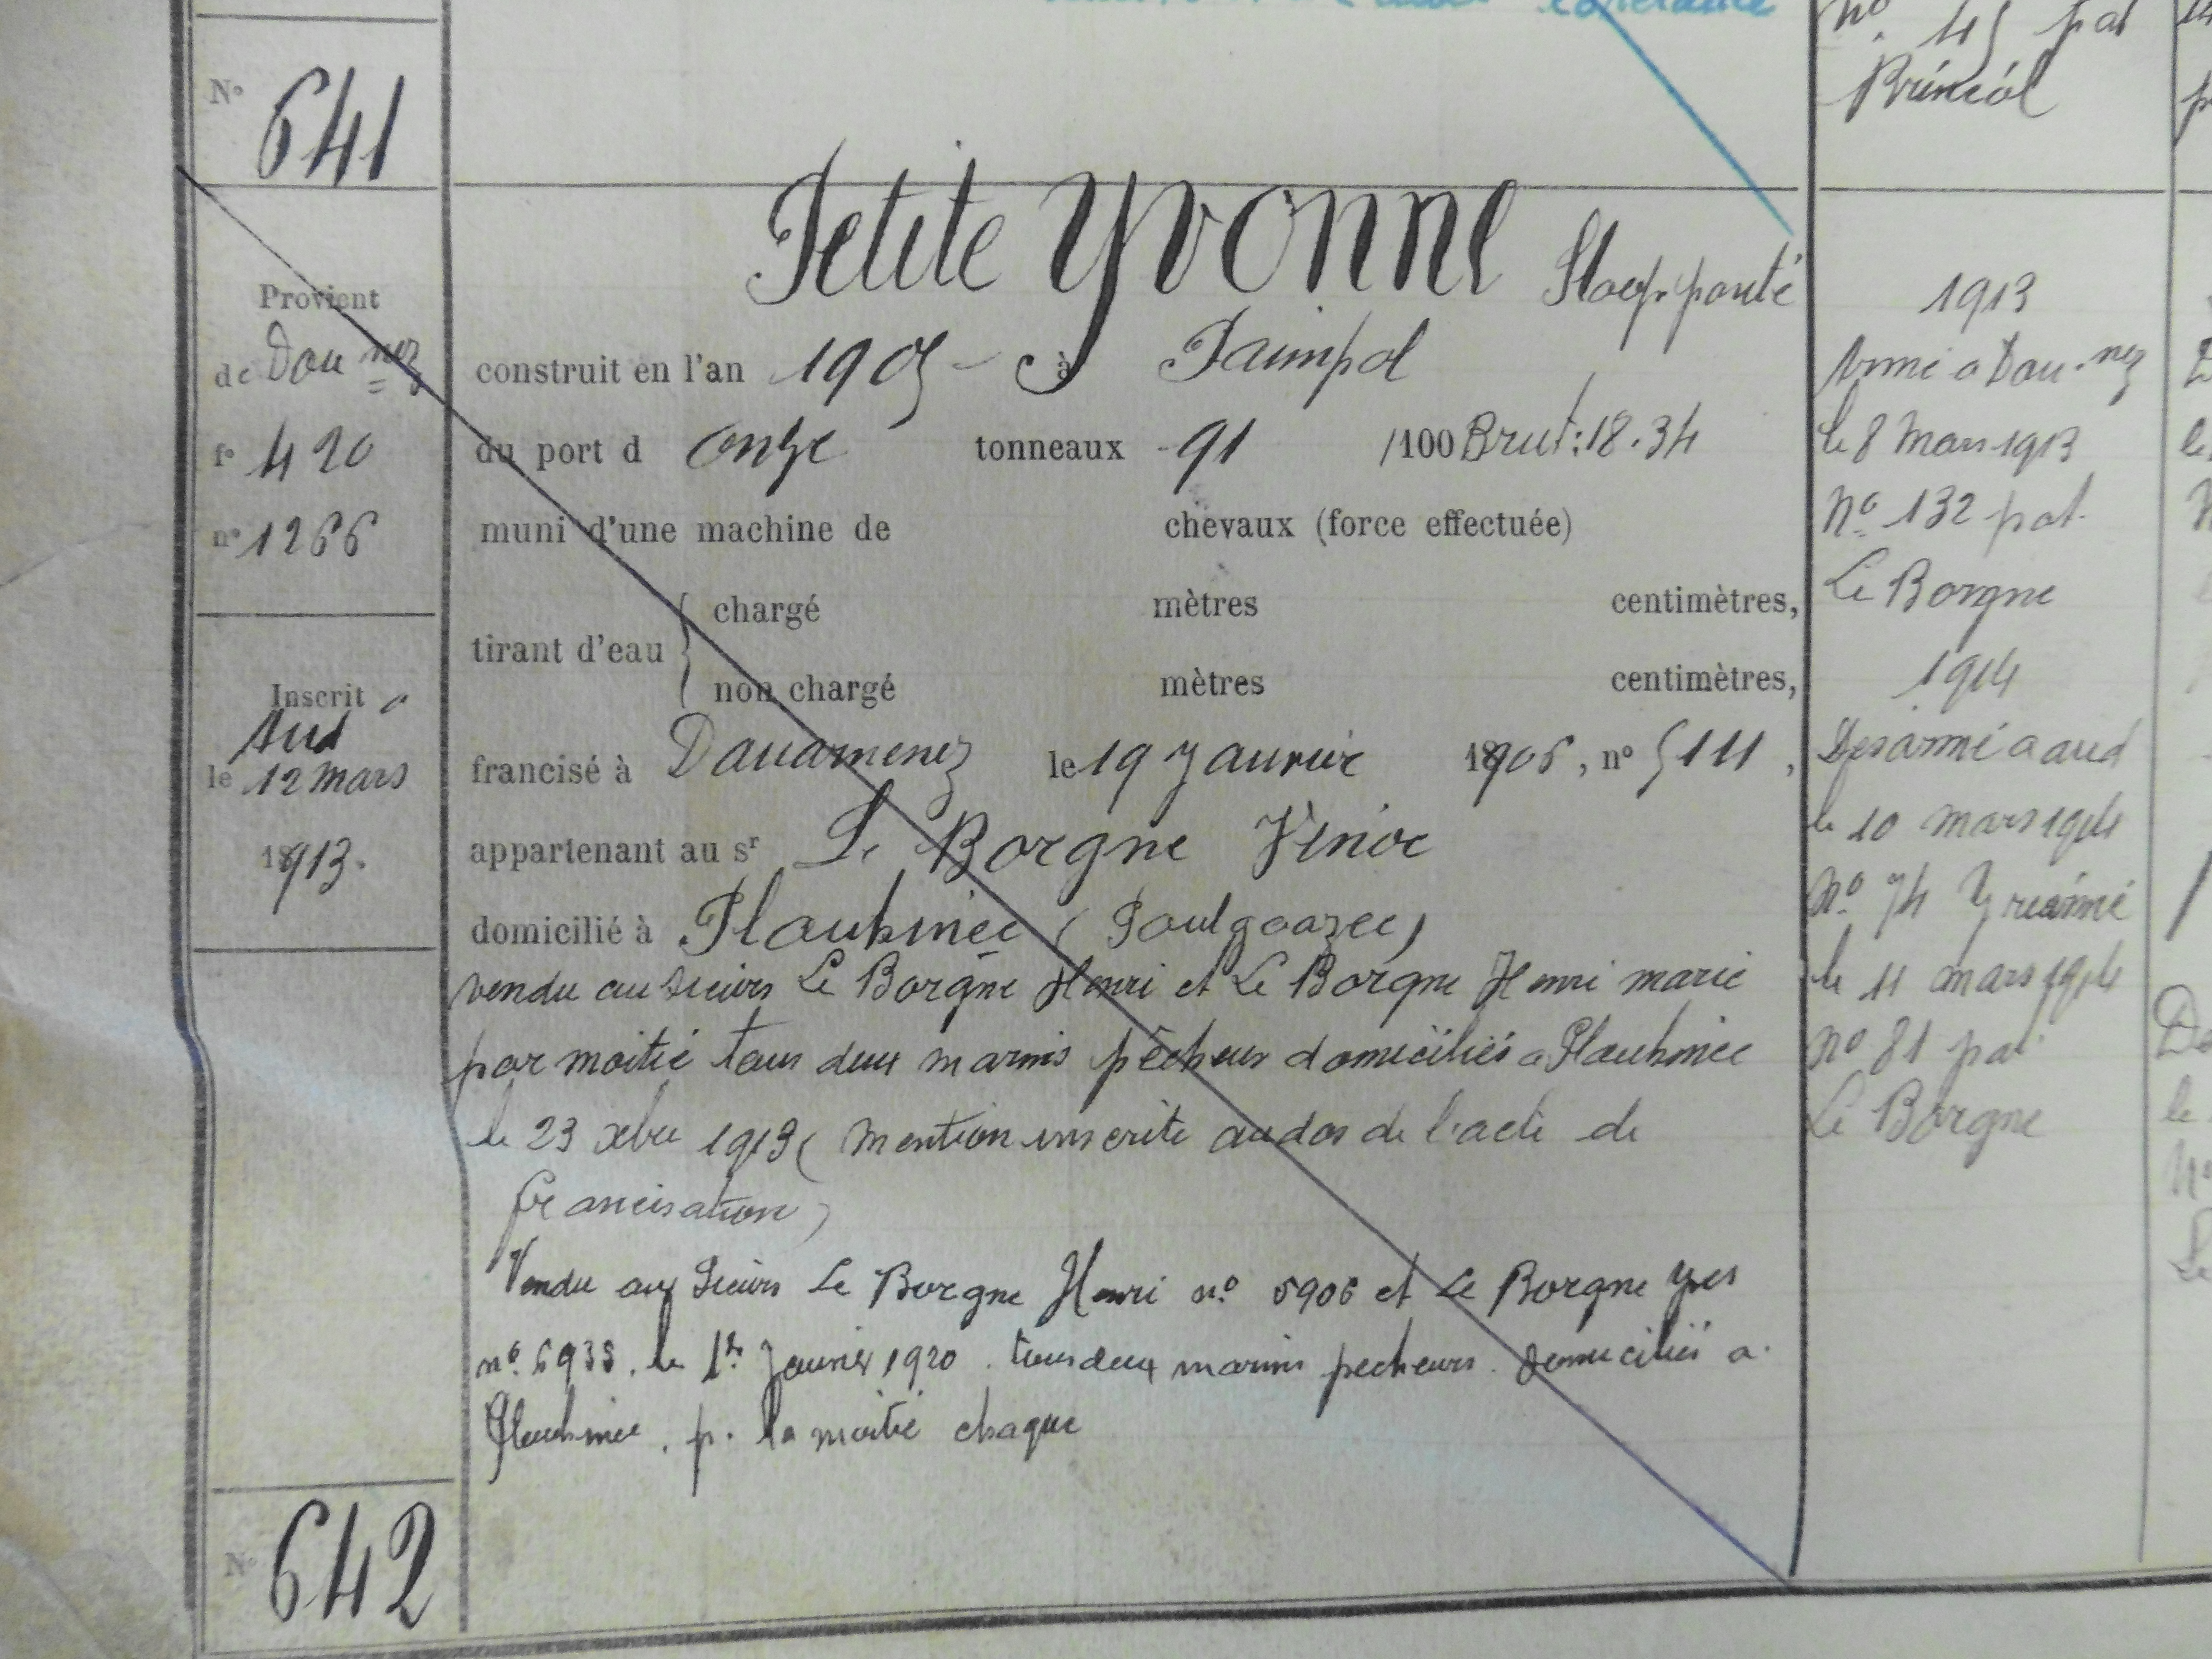 No 45 pat
Brinéol
N° 641
Petite Yvonne Sloop ponté
Provient
de Dou nez
f° 420
n° 1266
Inscrit à
Aud
le 12 mars
1913.
construit en l'an 1905 à Paimpol
du port d onze tonneaux 91 /100 Brut: 18.34
muni d'une machine de chevaux (force effectuée)
tirant d'eau
chargé mètres centimètres,
non chargé mètres centimètres,
francisé à Douarnenez le 19 Janvier 1906, n° 5111,
appartenant au sr Le Borgne Vinoc
domicilié à Plouhinec (Poulgoazec)
vendu au sieurs Le Borgne Henri et Le Borgne Henri marie
par moitié tous deux marins pêcheur domiciliés a Plouhinec
le 23 xbre 1913 (mention inscrite au dos de l'acte de
francisation)
Vendu aux Sieurs Le Borgne Henri n° 5906 et Le Borgne Yves
n° 6938, le 1er Janvier 1920. tous deux marins pecheurs. domiciliés a.
Plouhinec. p. la moitié chaque
1913
Armé a Dou.nez
le 8 mars 1913
No 132 pat.
Le Borgne
1914
Desarmé a aud
le 10 mars 1914
No 74 Y réarmé
le 11 mars 1914
No 81 pat
Le Borgne
N° 642